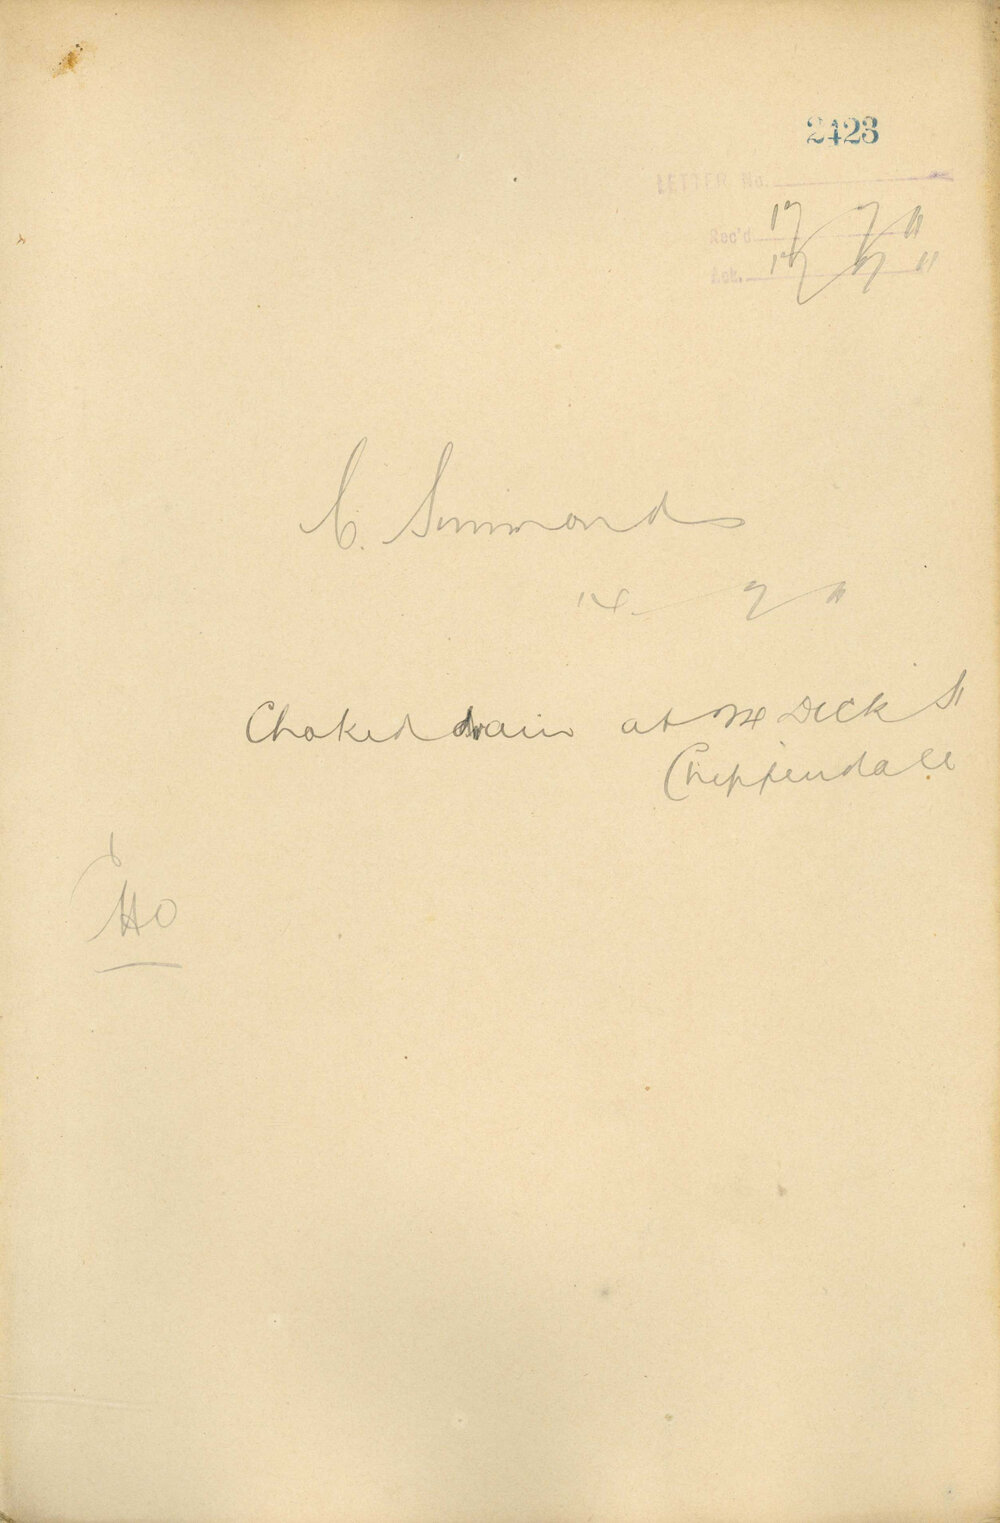 2423
LETTER No.
Rec'd 17 7 11
Ack. 17 7 11
C. Simmonds
14 7 11
Choked drain at 74 Dick St
Chippendale
HO